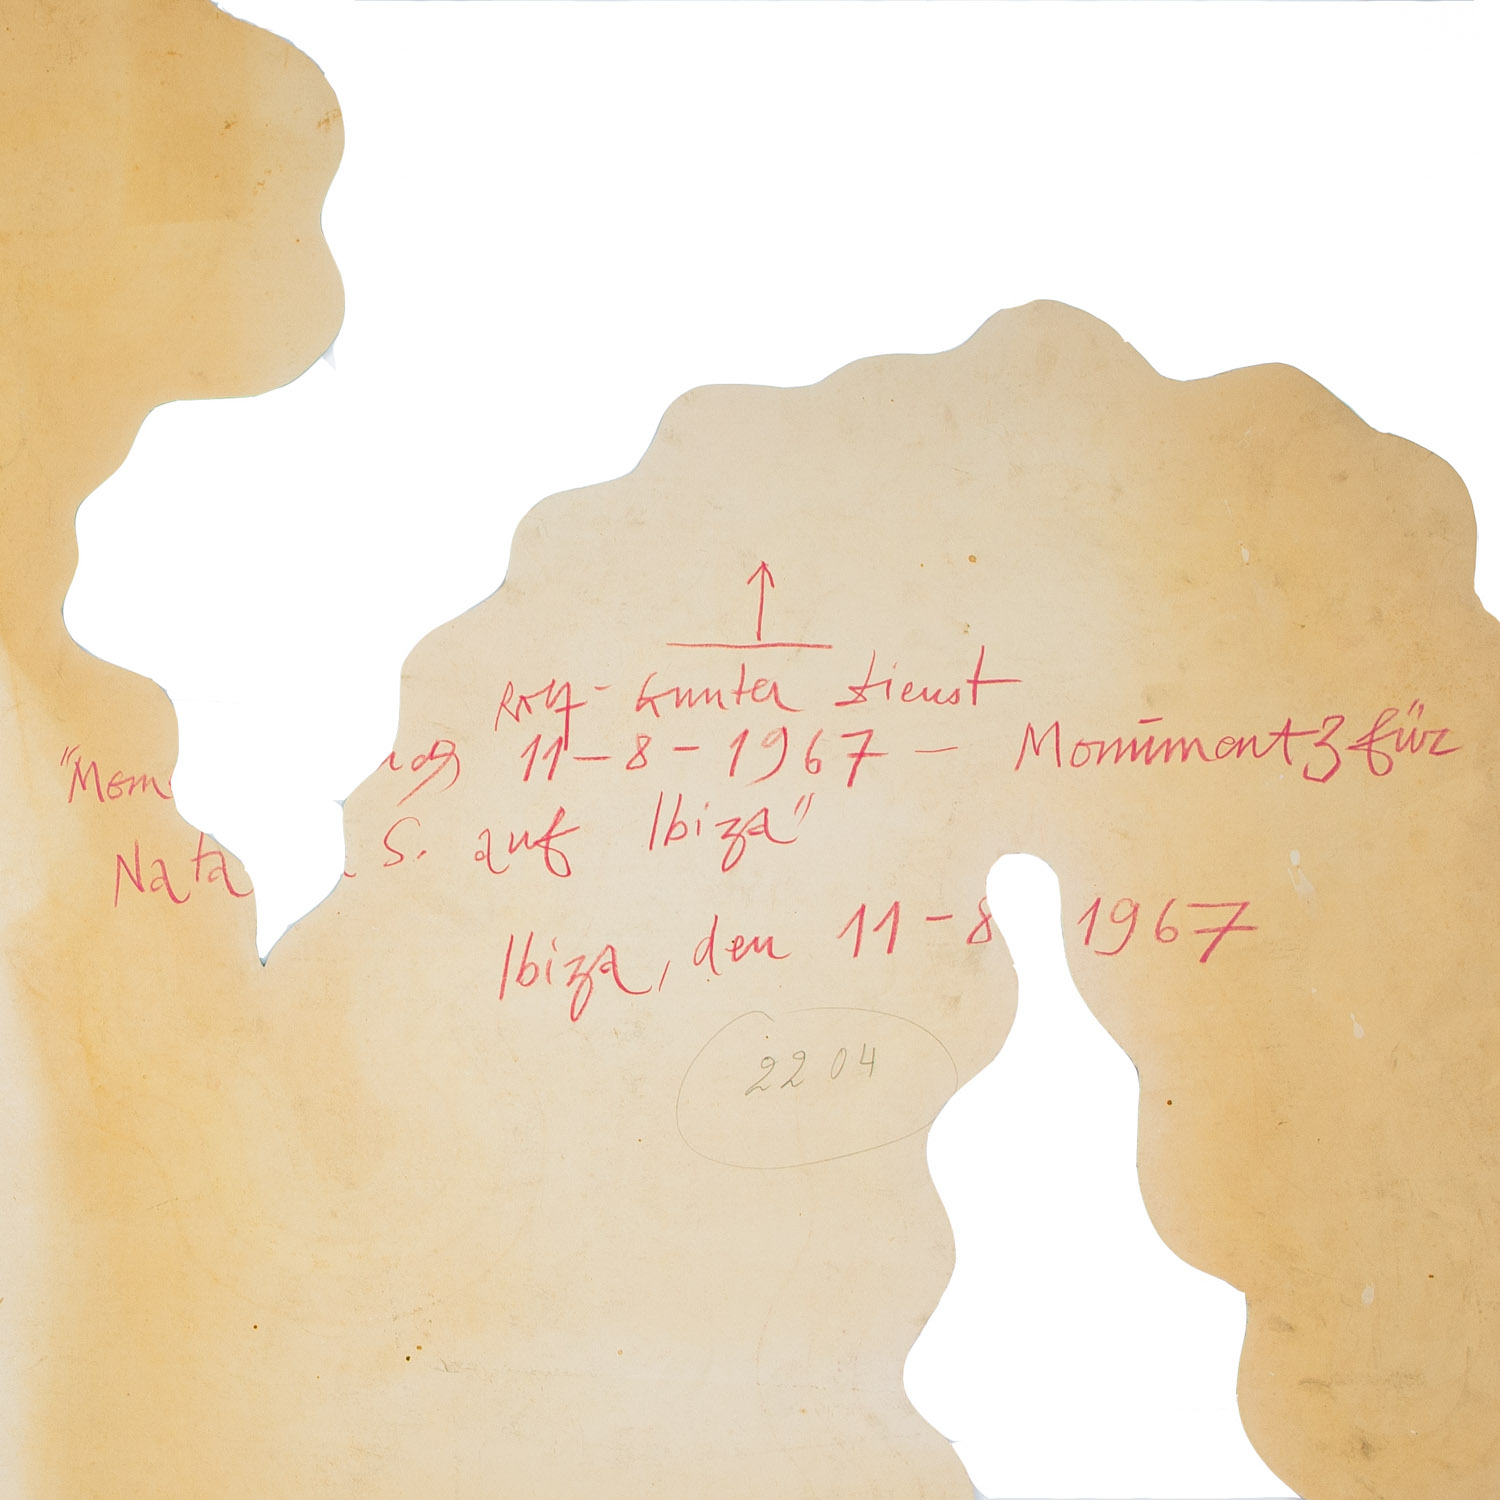 Rolf-Gunter Dienst
11-8-1967 - Monument 3 für
S. auf Ibiza"
Ibiza, den 11-8 1967
2204